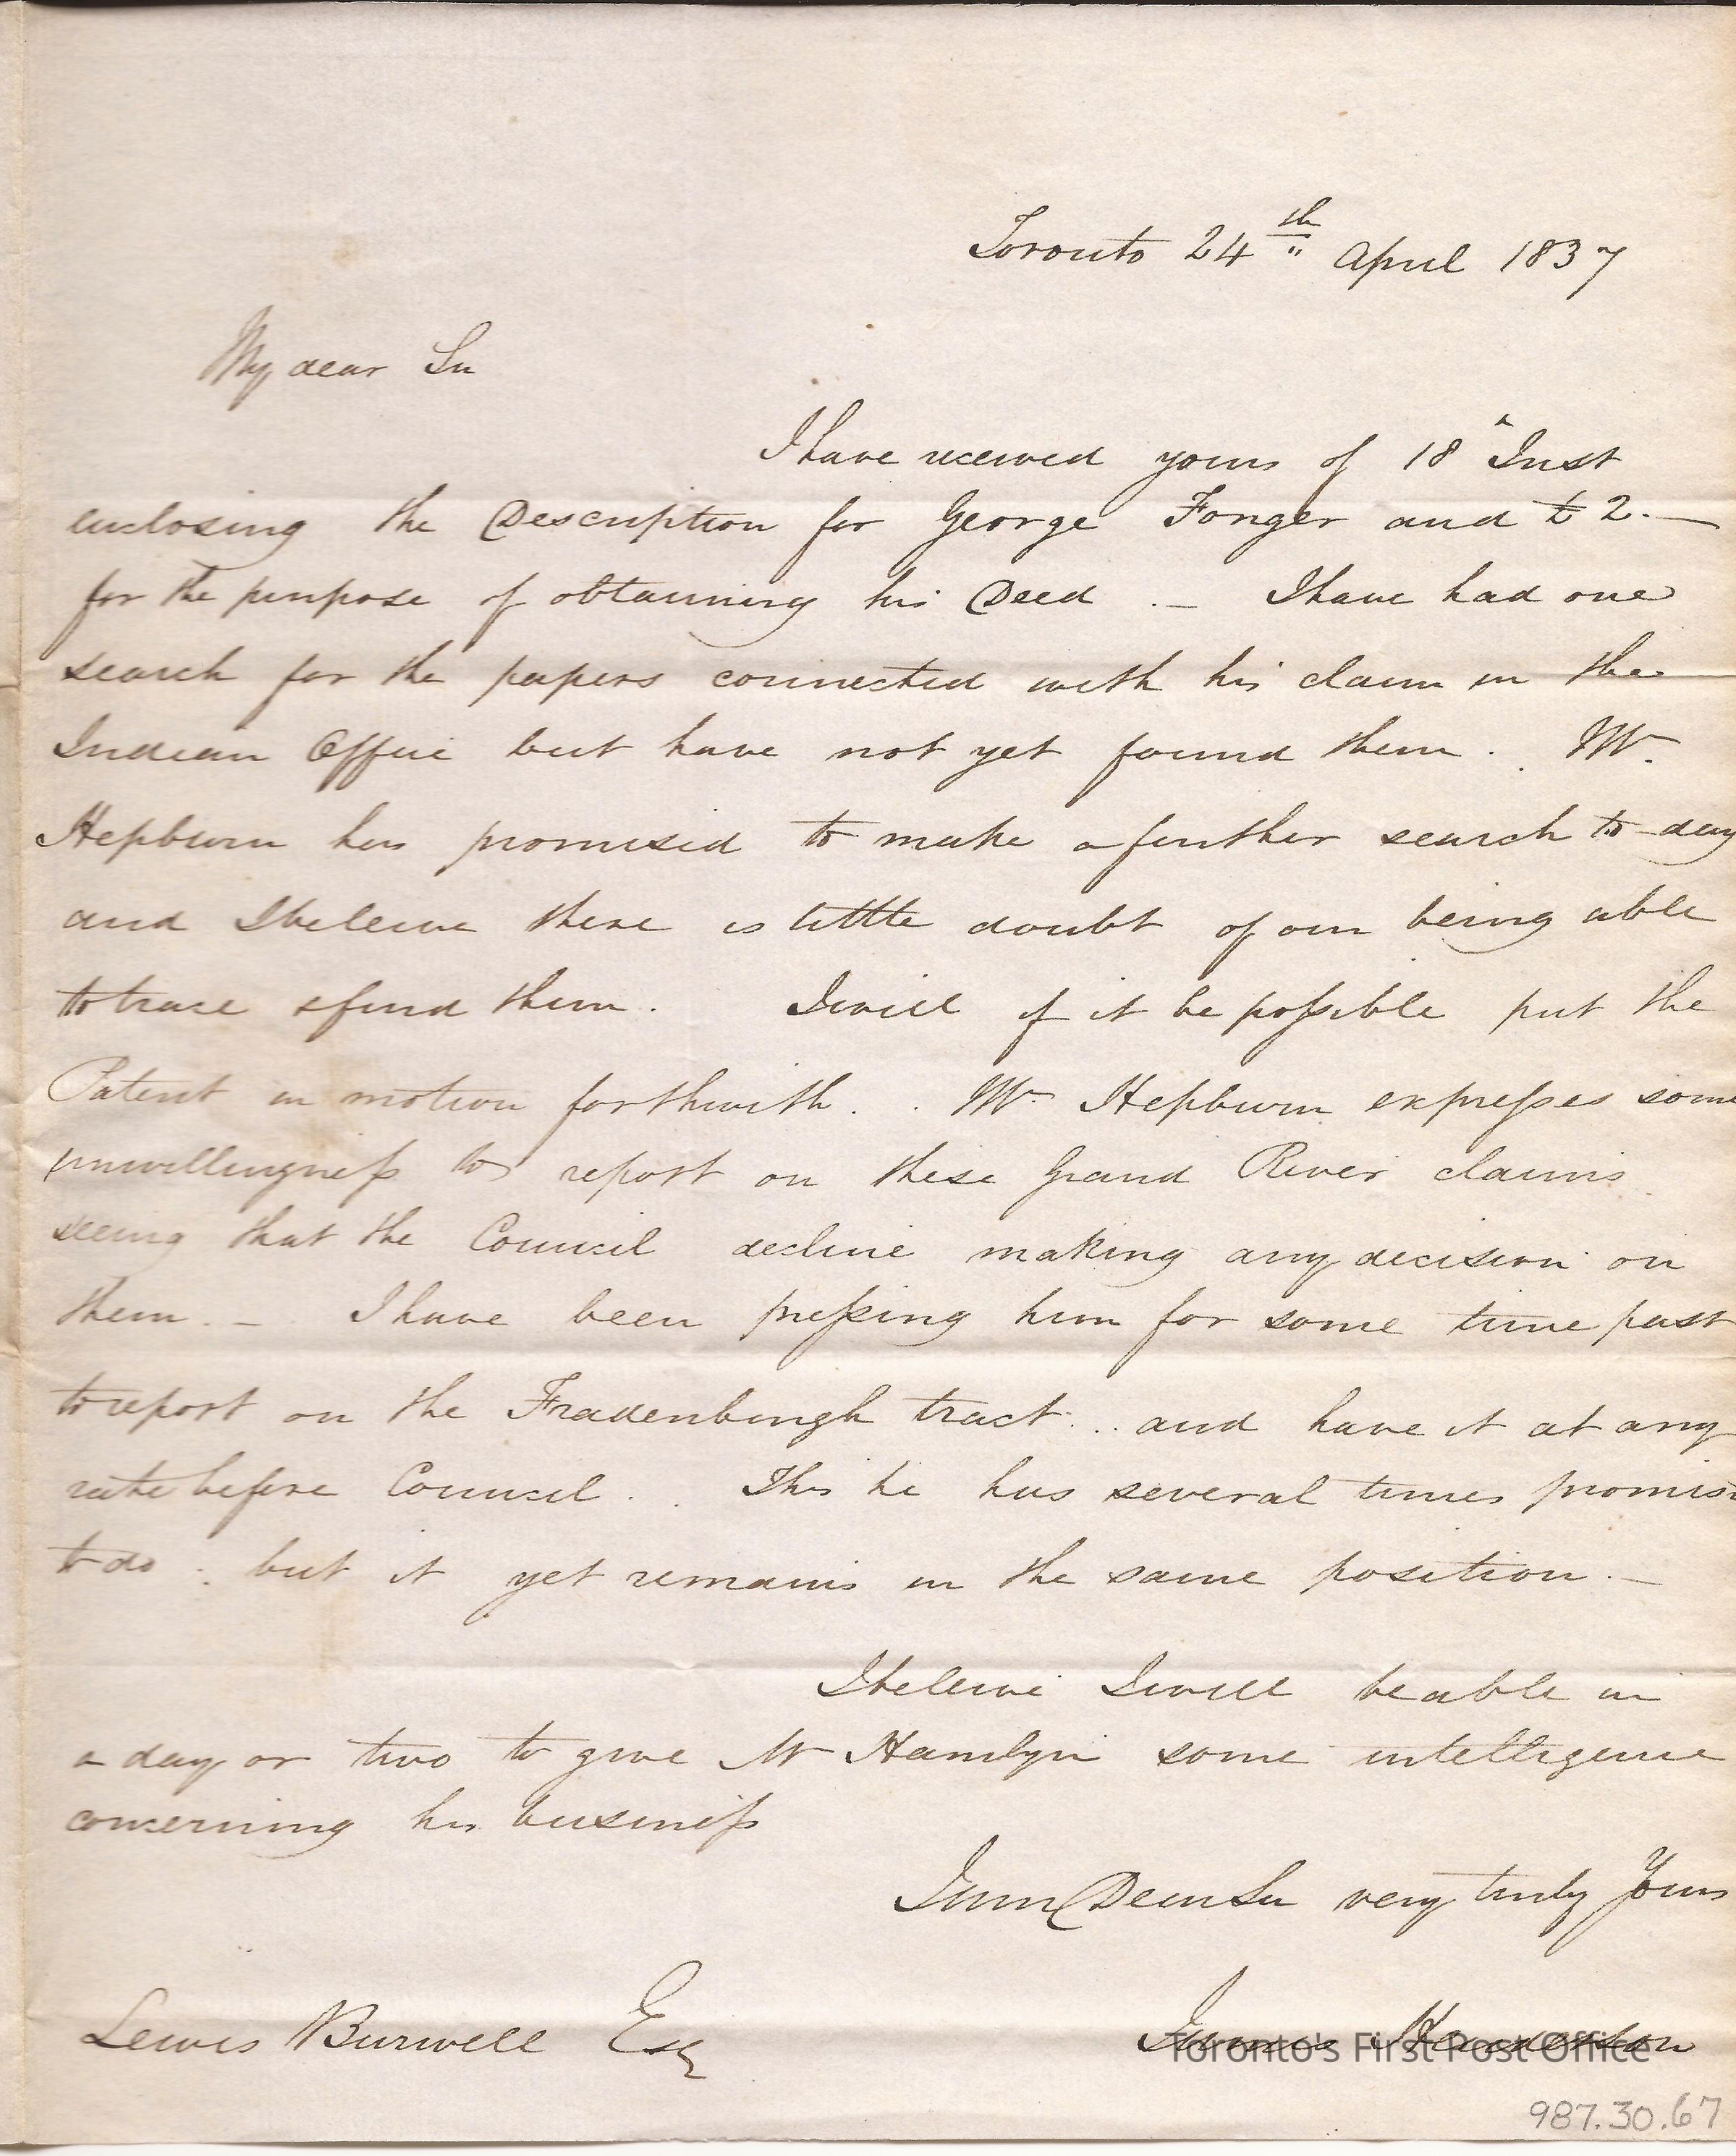 Toronto 24th April 1837
My dear Sir
I have received yours of 18th Inst
enclosing the Description for George Fonger and £2.—
for the purpose of obtaining his Deed . — I have had one
search for the papers connected with his claim in the
Indian Office but have not yet found them . Mr.
Hepburn has promised to make a further search to-day
and I beleive there is little doubt of our being able
to trace & find them . I will if it be possible put the
Patent in motion forthwith . . Mr Hepburn expresses some
unwillingness to report on these Grand River claims
seeing that the Council decline making any decision on
them . — I have been pressing him for some time past
to report on the Fradenburgh tract . . and have it at any
rate before Council . . This he has several times promis
to do : but it yet remains in the same position . —
I beleive I will be able in
a day or two to give Mr Hamlyn some intelligence
concerning his business
I am Dear Sir very truly Yours
James Henderson
Lewis Burwell Esq
Toronto's First Post Office
987.30.67